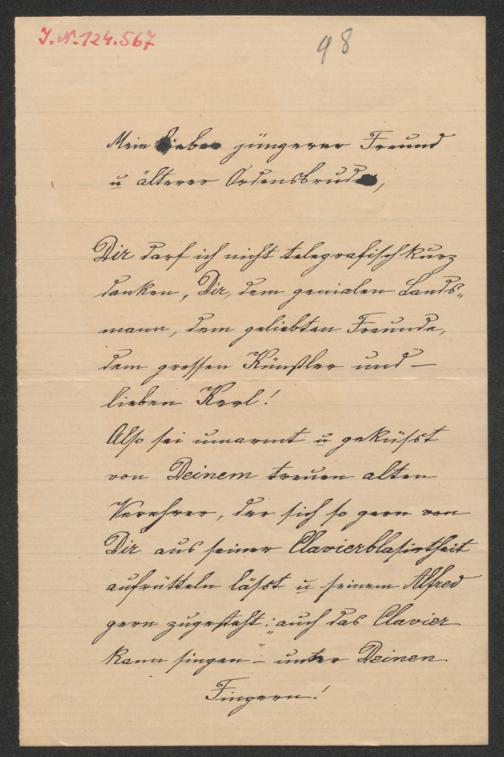 J.N. 124.567
98
Mein lieber jüngerer Freund
u älterer Ordensbruder,
Dir darf ich nicht telegrafisch kurz
danken, Dir, dem genialen Lands-
mann, dem geliebten Freunde,
dem grossen Künstler und –
lieben Kerl!
Also sei umarmt u geküsst
von Deinem treuen alten
Verehrer, der sich so gern von
Dir aus seiner Clavierblasirtheit
aufrütteln lässt u seinem Alfred
gern zugesteht: „auch das Clavier
kann singen" – unter Deinen
Fingern!